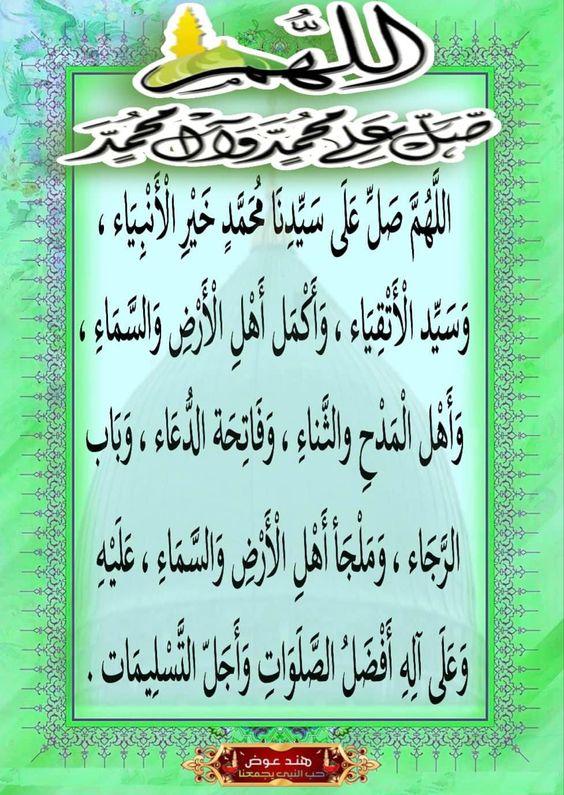 اللهم
صل على محمد وآل محمد
اللَّهُمَّ صَلِّ عَلَى سَيِّدِنَا مُحَمَّدٍ خَيْرِ الْأَنْبِيَاء ،
وَسَيِّد الْأَتْقِيَاء ، وَأَكْمَل أَهْلِ الْأَرْضِ وَالسَّمَاءِ ،
وَأَهْل الْمَدْحِ والثَّناءِ ، وَفَاتِحَة الدُّعَاء ، وَبَاب
الرَّجَاء ، وَمَلْجَأ أَهْلِ الْأَرْضِ وَالسَّمَاءِ ، عَلَيْهِ
وَعَلَى آلِهِ أَفْضَلُ الصَّلَوَاتِ وَأَجَلّ التَّسْلِيمَات .
هند عوض
حب النبي يجمعنا